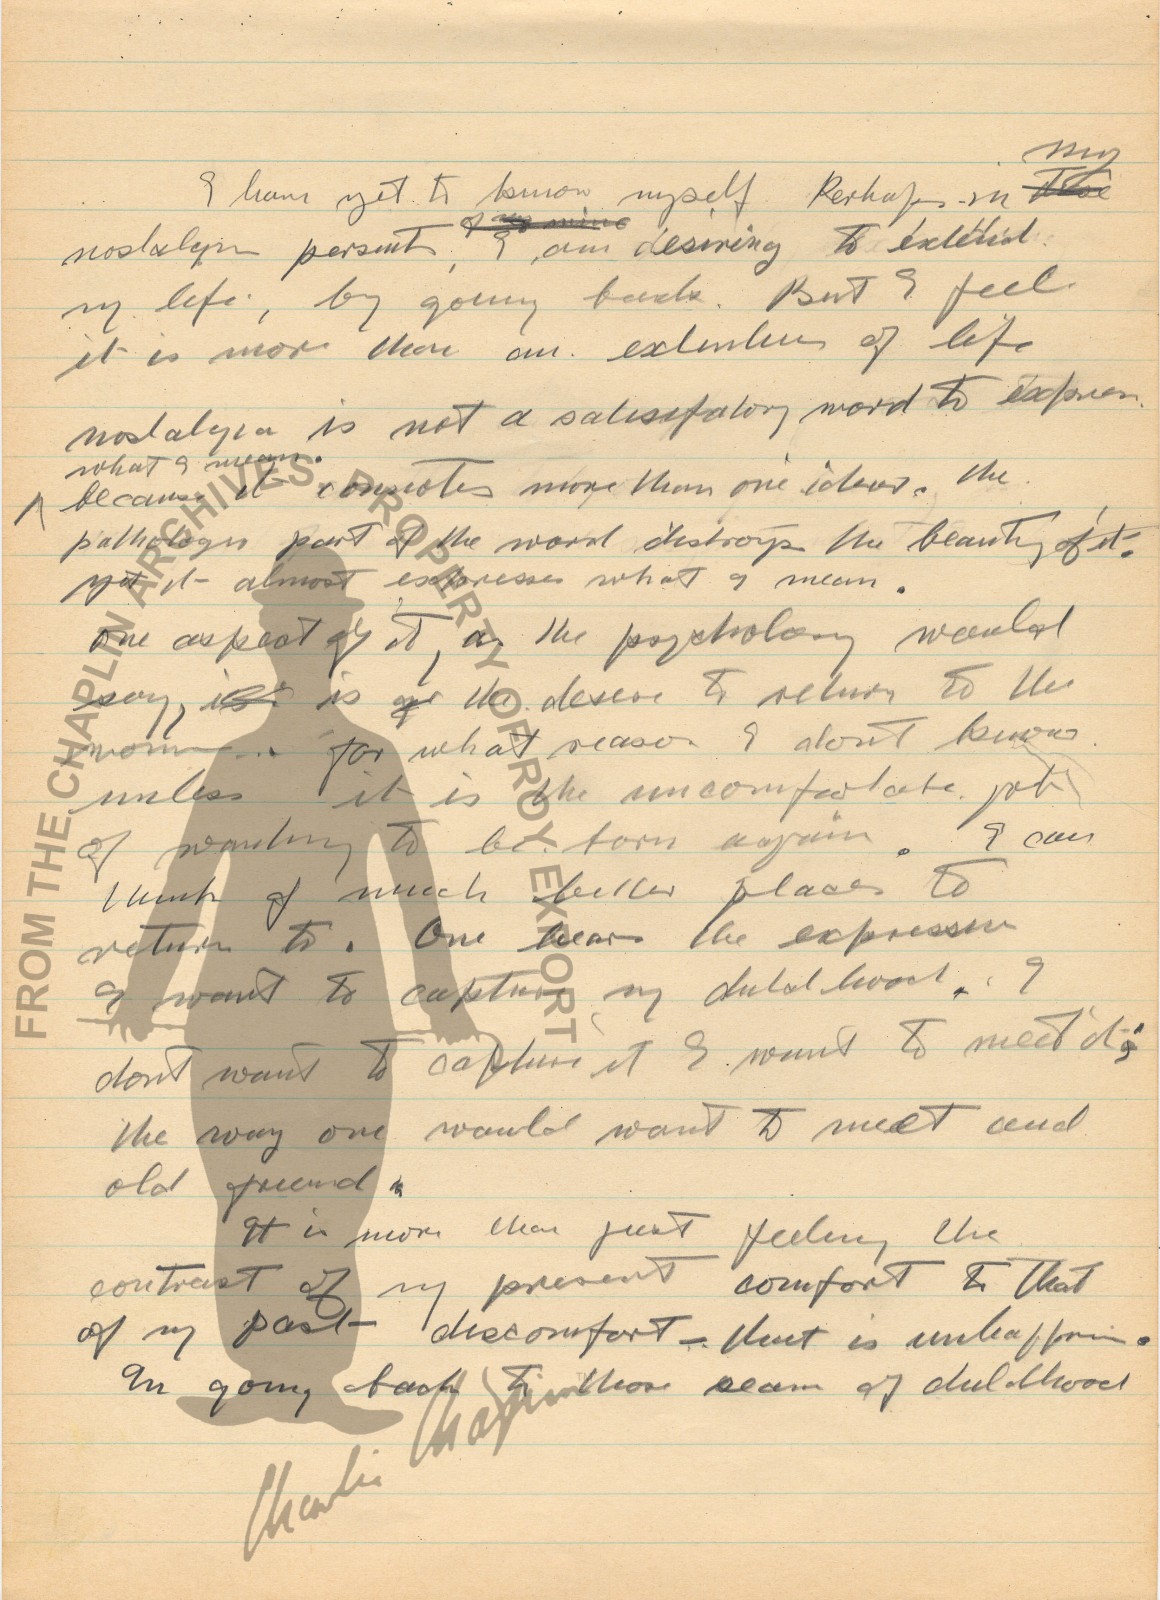 I have yet to know myself. Perhaps in my
nostalgia of my mine
persents, I am desiring to extend
my life, by going back. But I feel
it is more than an extention of life
nostalgia is not a satisifatory word to express
what I mean.
because it connotes more than one idear. the
pathologic part of the word distroys the beauty of it.
yet it almost expresses what I mean.
one aspect of it, as the psychology would
say, is the desire to return to the
womb.. for what reason I don't know
unless it is the uncomfortabe job
of wanting to be born again. I can
think of much better places to
return to. One hears the expression
I want to capture my childhood. I
dont want to capture it I want to meet it;
the way one would want to meet and
old freind.
It is more than just feeling the
contrast of my present comfort to that
of my past discomfort - that is unhappin.
In going back to those years of childhood
FROM THE CHAPLIN ARCHIVES PROPERTY OF ROY EXPORT
Charlie Chaplin